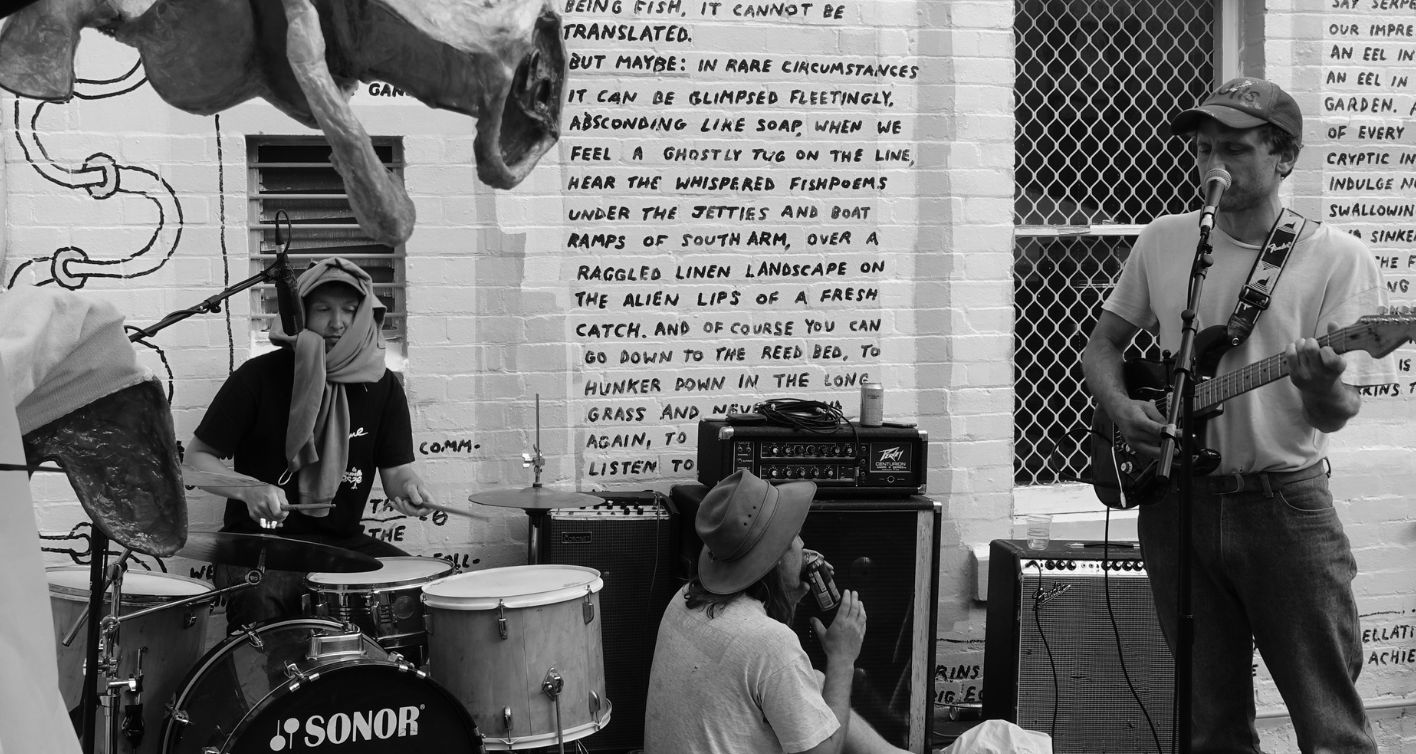 BEING FISH, IT CANNOT BE
TRANSLATED.
BUT MAYBE: IN RARE CIRCUMSTANCES
IT CAN BE GLIMPSED FLEETINGLY,
ABSCONDING LIKE SOAP, WHEN WE
FEEL A GHOSTLY TUG ON THE LINE,
HEAR THE WHISPERED FISHPOEMS
UNDER THE JETTIES AND BOAT
RAMPS OF SOUTH ARM, OVER A
RAGGLED LINEN LANDSCAPE ON
THE ALIEN LIPS OF A FRESH
CATCH. AND OF COURSE YOU CAN
GO DOWN TO THE REED BED, TO
HUNKER DOWN IN THE LONG
GRASS AND
AGAIN, TO
LISTEN TO
SAY
OUR IMPRE
AN EEL IN
AN EEL IN
GARDEN.
OF EVERY
CRYPTIC IN
INDULGE
SWALLOWIN
SINKE
THE F
NG
IS
ELLATI
ACHIE
COMM-
THE
RINS
PEAVEY
CENTURION
Fender
Fender
SONOR